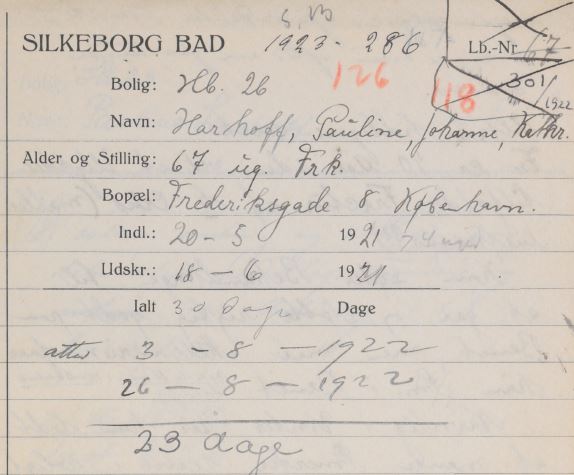 S. B
SILKEBORG BAD 1923 - 286 Lb.-Nr 67
126 18 301/1922
Bolig: Hb. 26
Navn: Harhoff, Pauline, Johanne, Kathr.
Alder og Stilling: 67 ug. Frk.
Bopæl: Frederiksgade 8 København.
Indl.: 20 - 5 1921
Udskr.: 18 - 6 1921
Ialt 30 Dage Dage
atter 3 - 8 - 1922
26 - 8 - 1922
23 dage